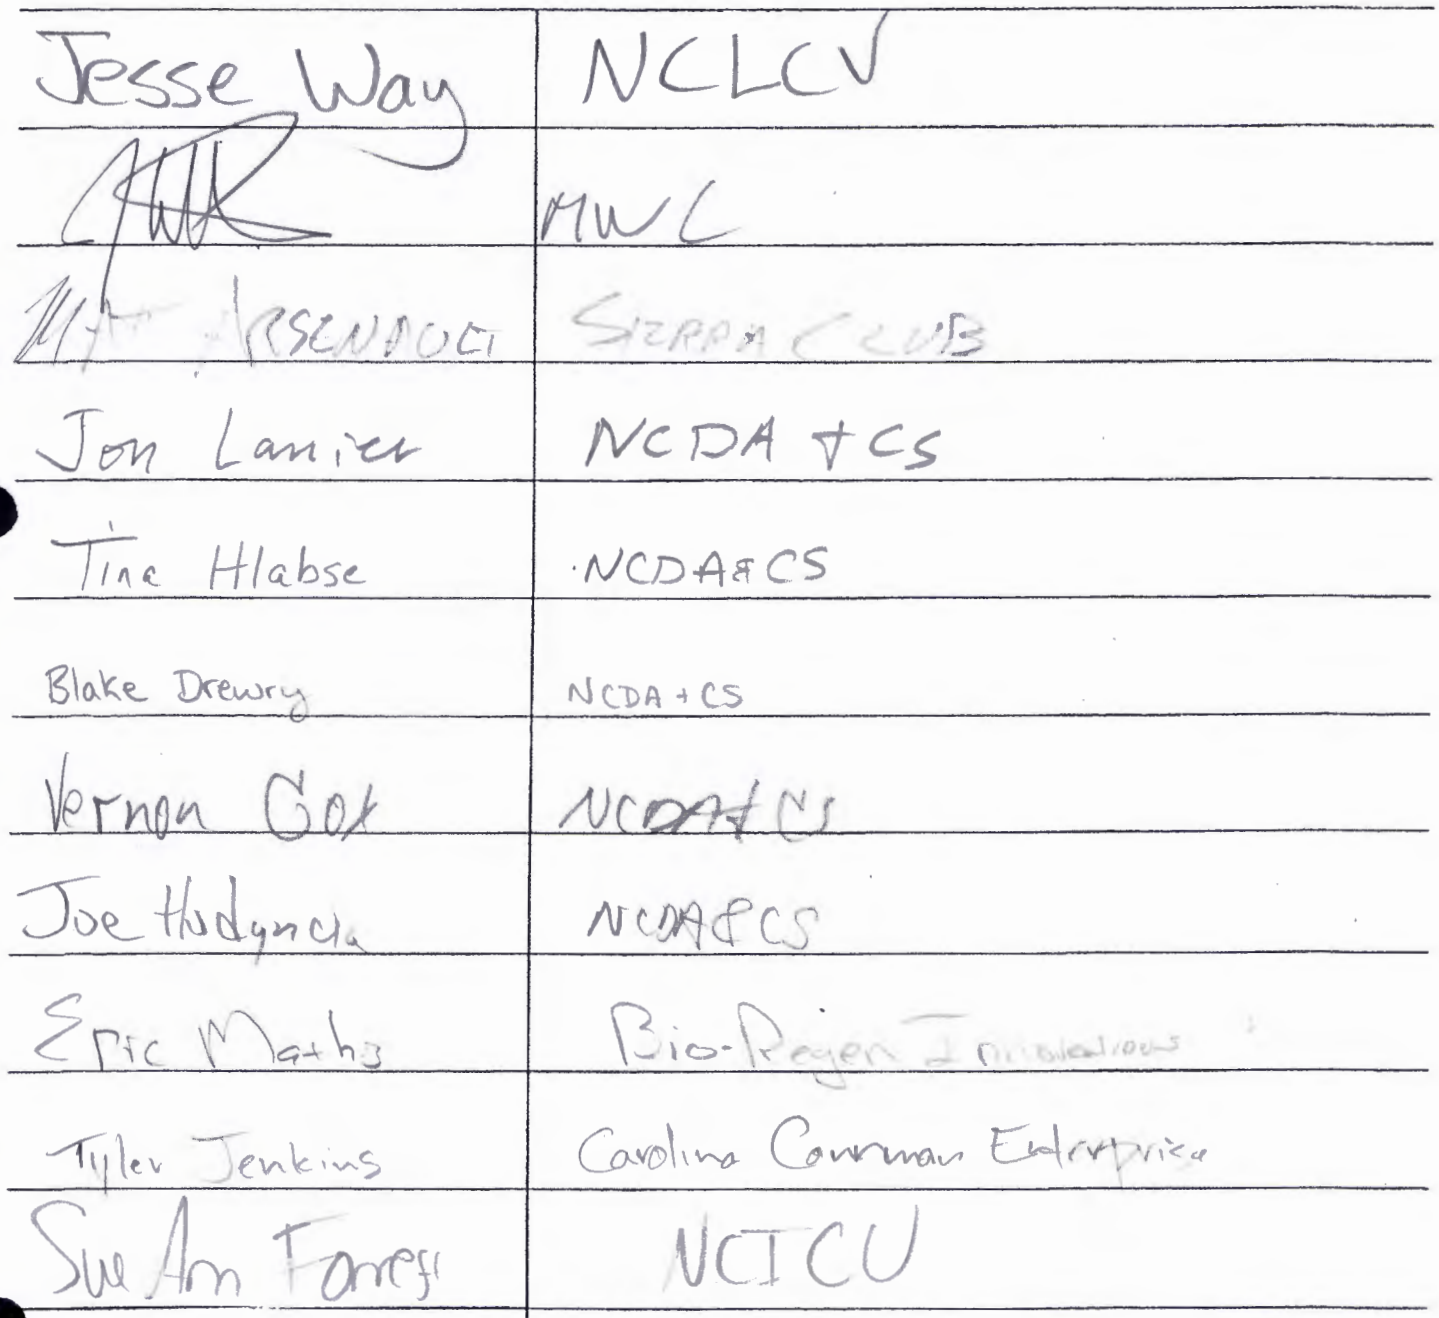 Jesse Way NCLCV
MWC
Mat Arsenault Sierra Club
Jon Lanier NCDA + CS
Tina Hlabse NCDA & CS
Blake Drewry NCDA + CS
Vernon Cox NCDA & CS
Joe Hudyncia NCDA & CS
Eric Mathis Bio-Regen Innovations
Tyler Jenkins Carolina Common Enterprise
Sue Ann Forrest NCICU